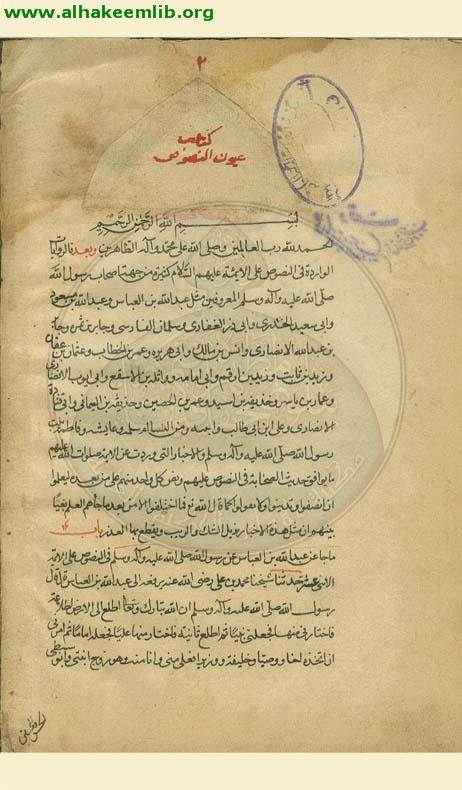 www.alhakeemlib.org
٢
كتاب
عيون النصوص
بسم الله الرحمن الرحيم
الحمد لله رب العالمين وصلى الله على محمد وآله الطاهرين وبعد فالروايات
الواردة في النصوص على الائمة عليهم السلام كثيرة من جهة اصحاب رسول الله
صلى الله عليه وآله وسلم المعروفين مثل عبد الله بن العباس وعبد الله مسعود
وابى سعيد الخدرى وابى ذر الغفارى وسلمان الفارسى وجابر بن سمرة وجابر
بن عبد الله الانصارى وانس بن مالك وابى هريرة وعمر بن الخطاب وعثمان بن عفان
وزيد بن ثابت وزيد بن ارقم وابى امامه وواثلة بن الاسقع وابى ايوب الانصارى
وعمار بن ياسر وحذيفة بن اسيد وعمر بن الحصين وحذيفة بن اليمانى وابى قتادة
الانصارى وعلى ابن ابى طالب ومن النساء ام سلمه وعايشه وفاطمة بنت
رسول الله صلى الله عليه وآله وسلم والاخبار التى وردت عن الائمة صلوات الله عليهم
ما يوافق حديث الصحابة في النصوص عليهم ونص كل واحد منهم على من بعده ليعلموا
ان انصفوا ولا يكونوا كما قال الله تع فما اختلفوا الا من بعد ما جاءهم العلم بغيا
بينهم ان مثل هذه الاخبار يزيل الشك والريب ويقطع بها العذر باب
ما جاء عن عبد الله بن العباس عن رسول الله صلى الله عليه وآله وسلم في النصوص على الائمة
الاثنى عشر حدثنا شيخنا محمد بن على رضى الله عنه يرفعه الى عبد الله بن العباس قال قال
رسول الله صلى الله عليه وآله وسلم ان الله تبارك وتعالى اطلع الى الارض اطلاعة
فاختارنى منها فجعلنى نبيا ثم اطلع ثانية فاختار منها عليا فجعله اماما ثم امرنى
ان اتخذه اخا ووصيا وخليفة ووزيرا فعلى منى وانا منه وهو زوج ابنتى وابو سبطى